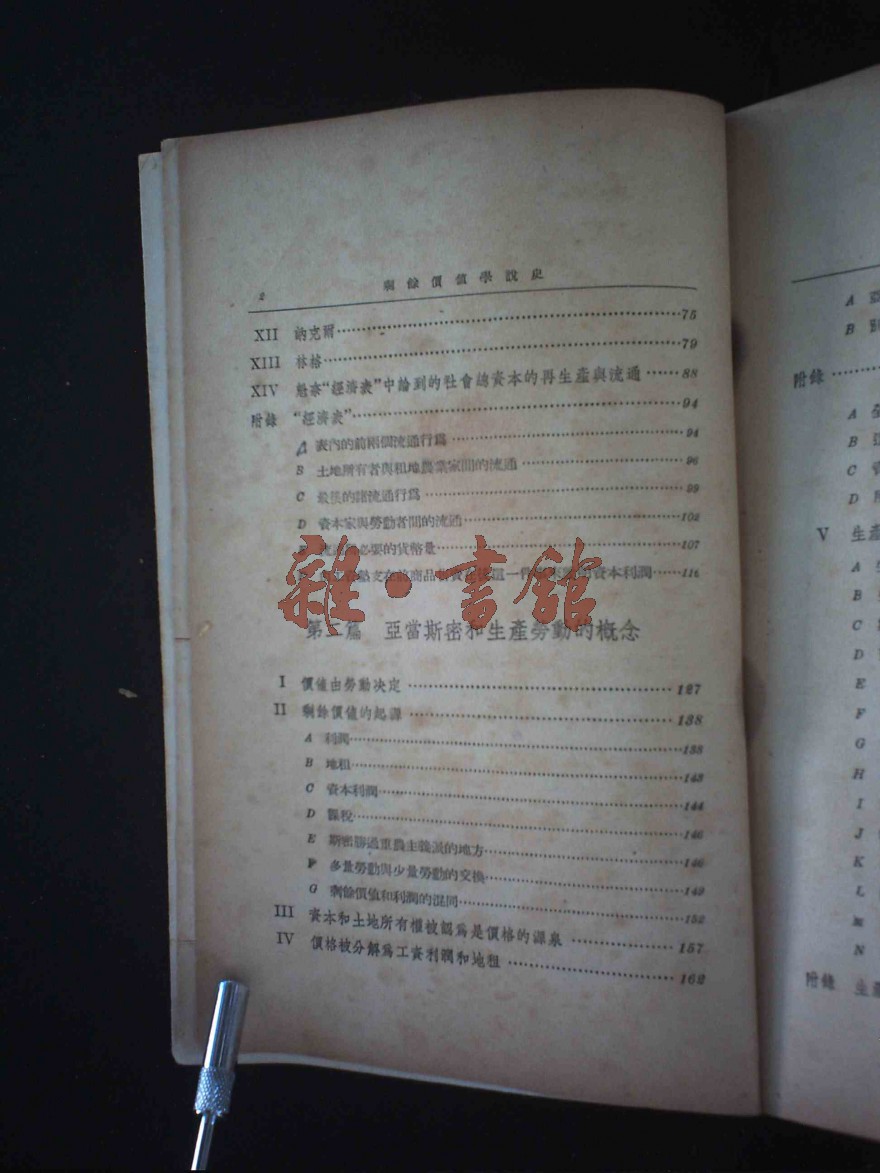 2 剩餘價值學說史
XII 訥克爾 75
XIII 林格 79
XIV 魁奈“經濟表”中論到的社會總資本的再生產與流通 88
附錄 “經濟表” 94
A 表內的前兩個流通行爲 94
B 土地所有者與租地農業家間的流通 96
C 最後的諸流通行爲 99
D 資本家與勞動者間的流通 102
必要的貨幣量 107
這一件 資本利潤 116
雜·書館
第二篇 亞當斯密和生產勞動的概念
I 價值由勞動決定 127
II 剩餘價值的起源 138
A 利潤 138
B 地租 143
C 資本利潤 144
D 課稅 146
E 斯密勝過重農主義派的地方 146
F 多量勞動與少量勞動的交換 149
G 剩餘價值和利潤的混同 152
III 資本和土地所有權被認爲是價格的源泉 157
IV 價格被分解爲工資利潤和地租 162
A 亞
B
附錄
A
B
C
D
V 生產
A
B
C
D
E
F
G
H
I
J
K
L
M
N
附錄 生產